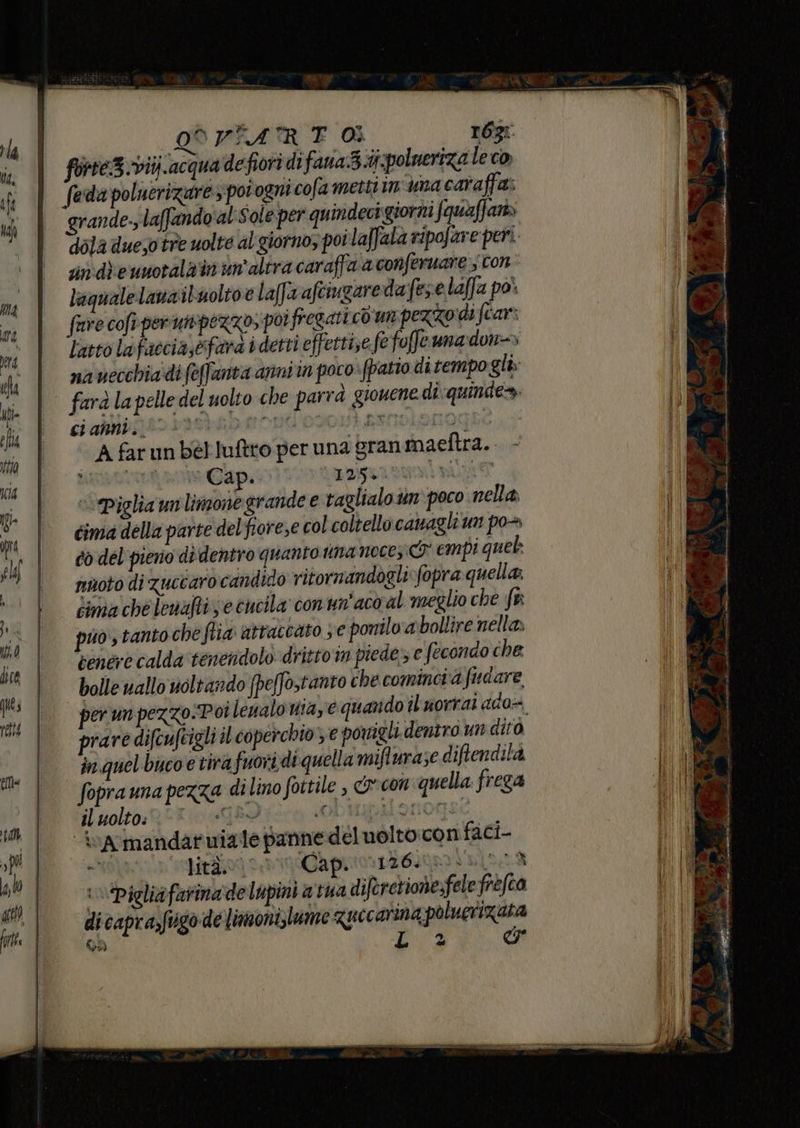 QVARTO. 163
forte ʒ. viij. acqua de fiori di faua ʒ. ij. poluerizale co
seda poluerizare, poi ogni cosa metti in una caraffa
grande, lassando al Sole per quindeci giorni squassan
dola due, o tre uolte al giorno, poi lassala riposare per
un dì e uuotala in un'altra caraffa a conseruare, con
laquale laua il uolto e lassa asciugare da se, e lassa poi
fare cosi per un pezzo, poi fregati cō un pezzo di scar
latto la faccia, e farà i detti effetti, e se fosse una don-
na uecchia di sessanta anni in poco spatio di tempo gli
farà la pelle del uolto che parrà giouene di quinde-
ci anni.
A far un bel lustro per una gran maestra.
Cap. 125.
Piglia un limone grande e taglialo un poco nella
cima della parte del fiore, e col coltello cauagli un po-
co del pieno di dentro quanto una noce, & empi quel
nuoto di zuccaro candido ritornandogli sopra quella
cima che leuasti, e cucila con un'aco al meglio che si
puo, tanto che stia attaccato, e ponilo a bollire nella
cenere calda tenendolo dritto in piede, e secondo che
bolle uallo uoltando spesso, tanto che cominci a sudare
per un pezzo. Poi leualo uia, e quando il uorrai ado-
prare discuscigli il coperchio, e ponigli dentro un dito
in quel buco e tira fuori di quella mistura, e distendila
sopra una pezza di lino sottile, & con quella frega
il uolto.
A mandar uia le panne del uolto con faci-
lità. Cap. 126.
Piglia farina de lupini a tua discretione, fele fresca
di capra, sugo de limoni, lume zuccarina poluerizata
L 2 &